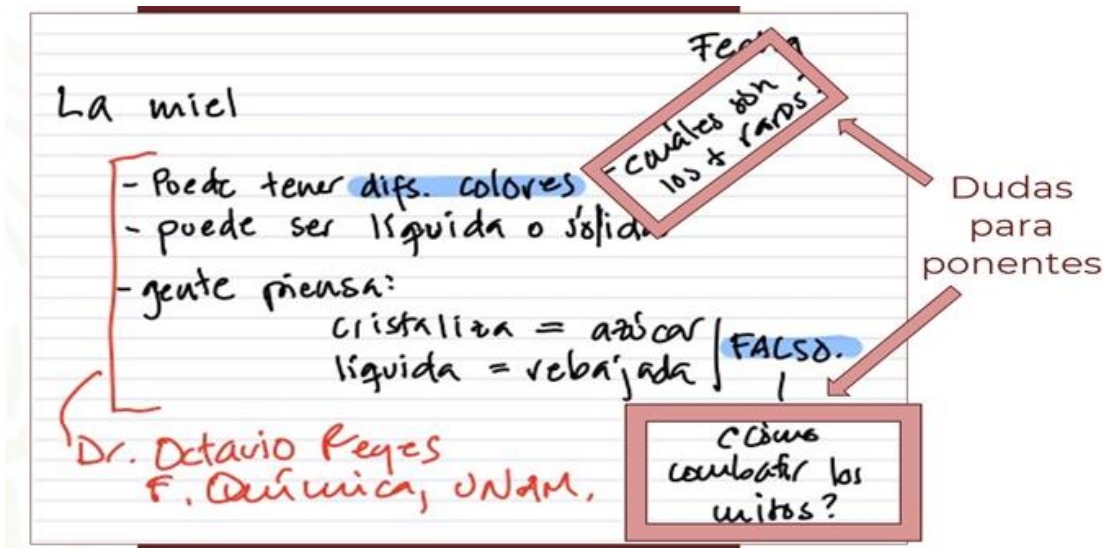 Fecha
La miel
- cuáles son
los + raros -
- Puede tener difs. colores
- puede ser líquida o sólida
- gente piensa:
cristaliza = azúcar
líquida = rebajada
FALSO.
Dr. Octavio Reyes
F. Química, UNAM.
¿Cómo
combatir los
mitos?
Dudas
para
ponentes